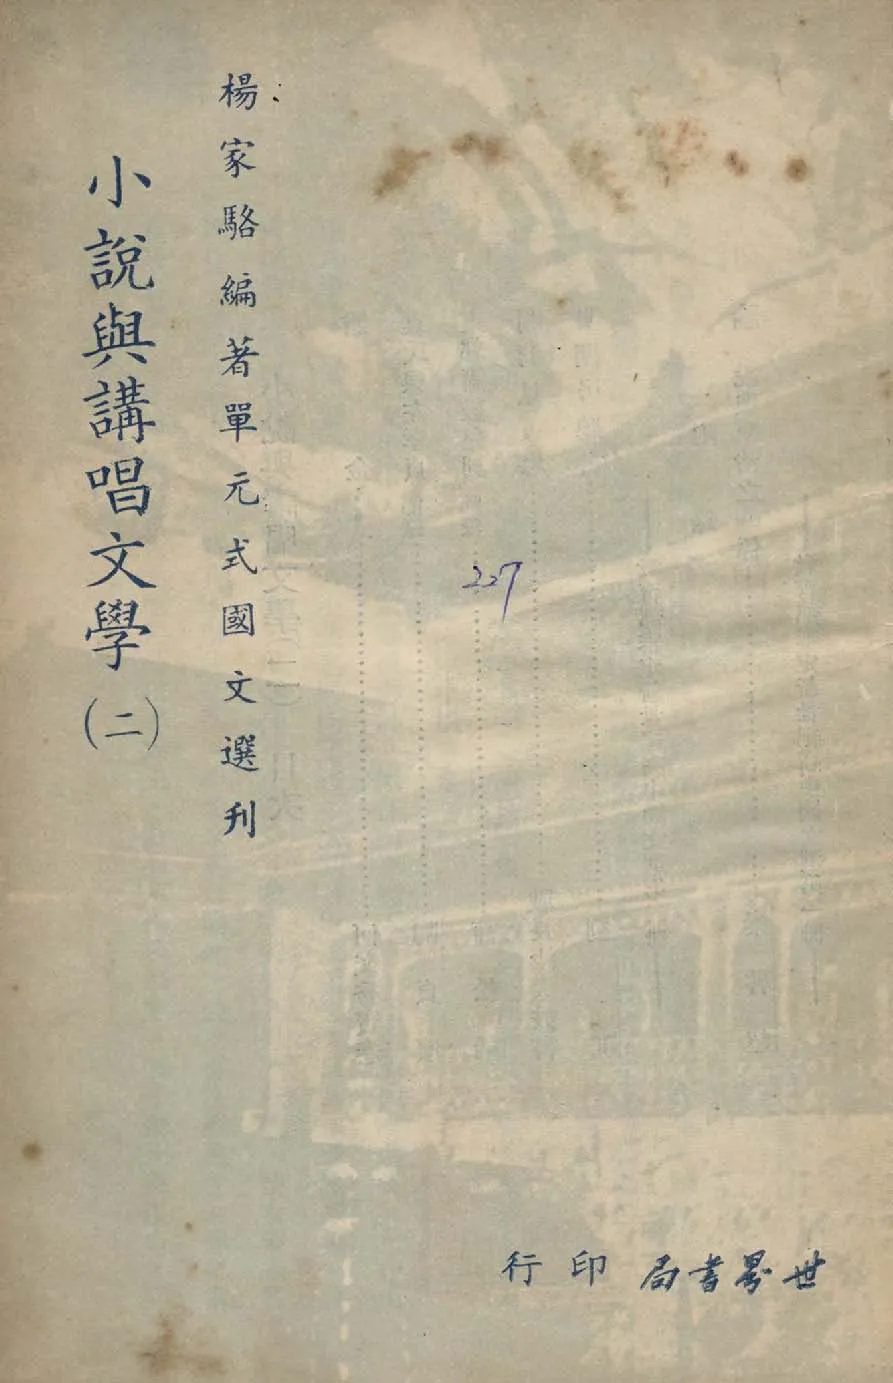 楊家駱編著單元式國文選刊
小說與講唱文學(二)
227
世界書局印行